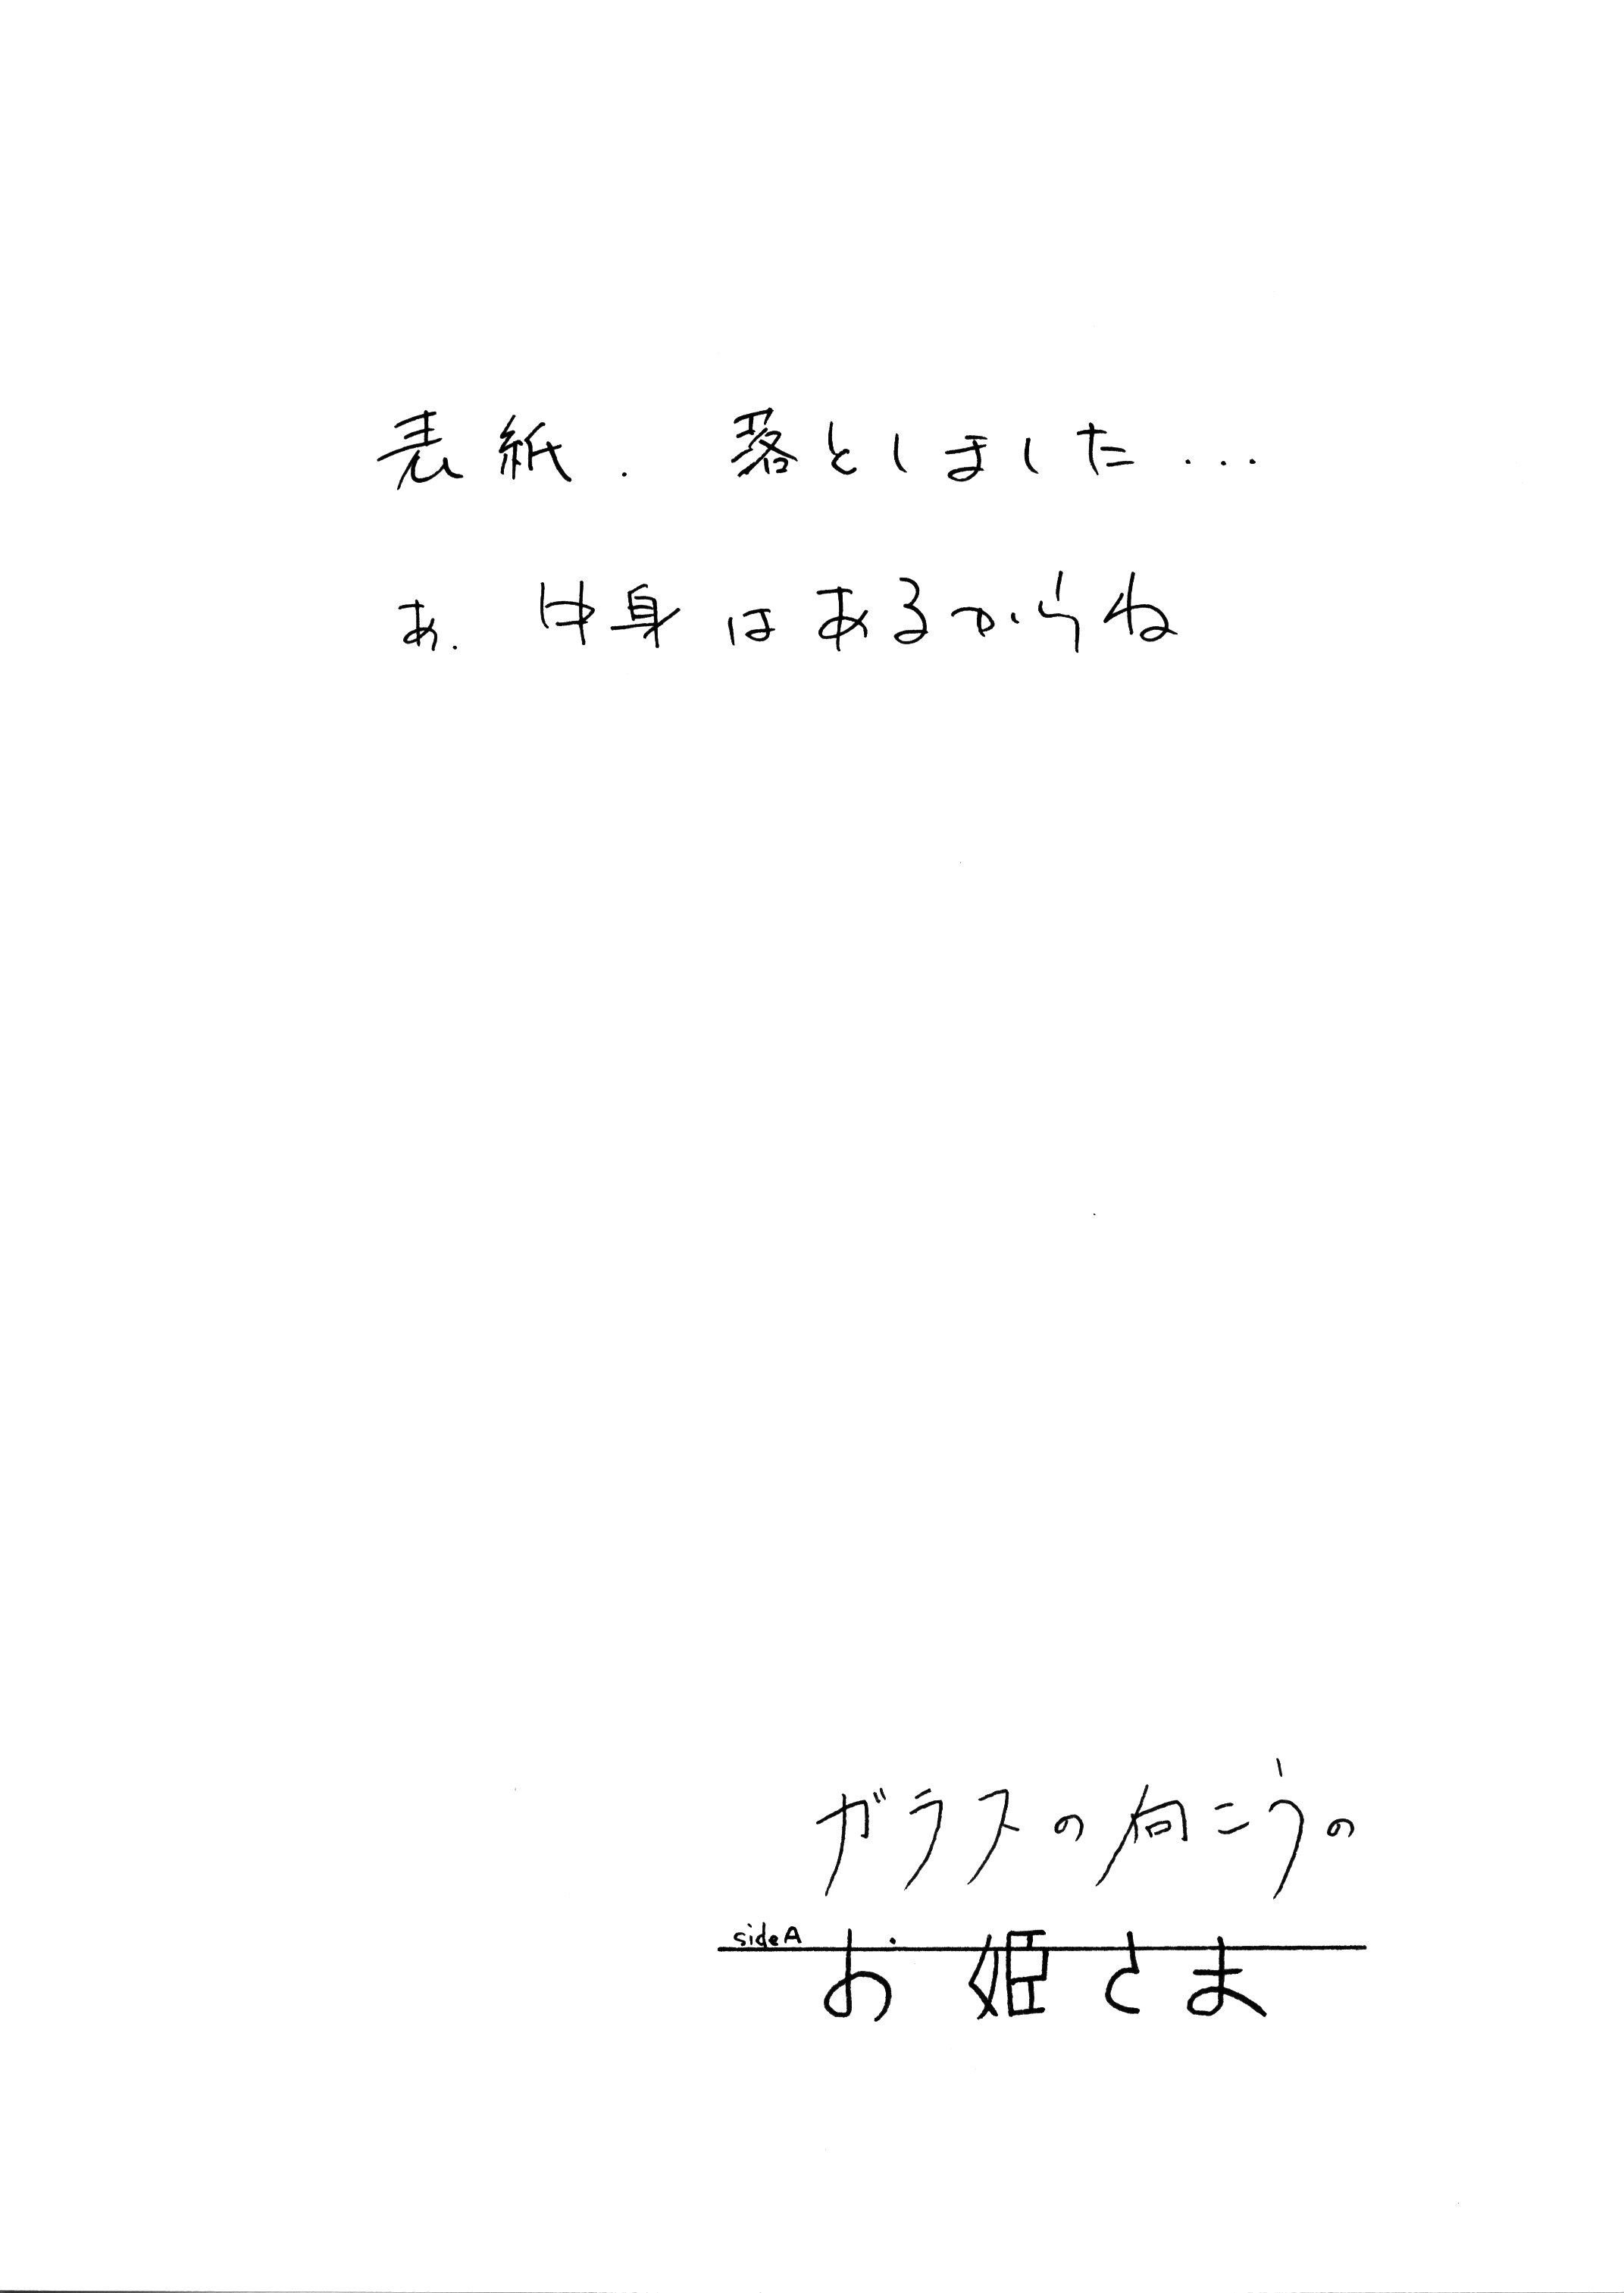 表紙. 落としました...
あ. 中身はあるからね
ガラスの向こうの
sideA
お姫さま